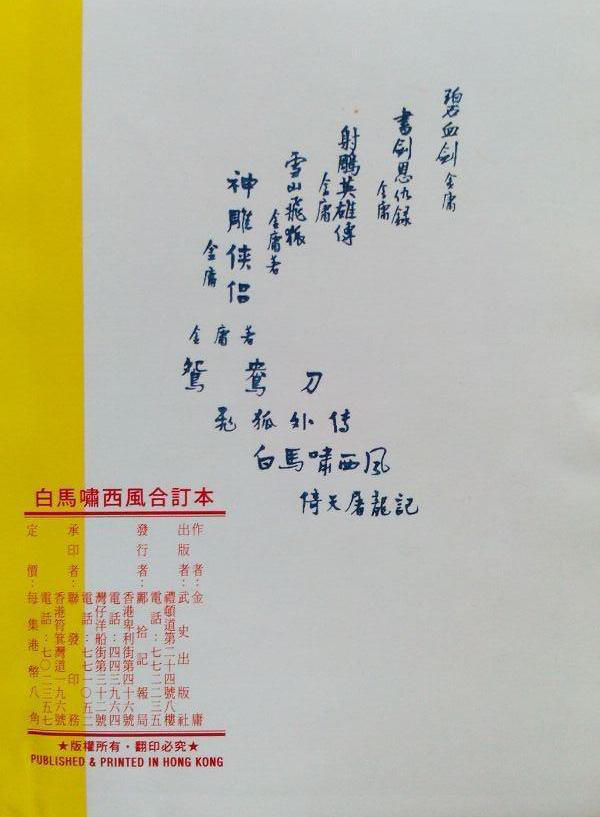 碧血剑 金庸
書剑恩仇録
金庸
射鵰英雄傳
金庸
雪山飛狐
金庸著
神雕侠侣
金庸
金庸著
鴛鴦刀
飛狐外传
白馬嘯西風
倚天屠龍記
白馬嘯西風合訂本
作者:金庸
出版者:武史出版社
禮頓道第二十四號八樓
電話:
發行者:鄺拾記報局
香港卑利街第四十六號
電話:四四三九六四
灣仔洋船街第三十二號
電話:七七一〇五二
承印者:聯發印務
香港筲箕灣道一九六號
電話:七〇二三五七
定價:每集港幣八角
★版權所有·翻印必究★
PUBLISHED & PRINTED IN HONG KONG